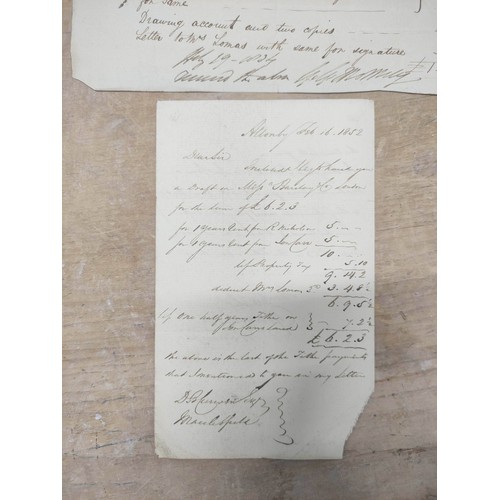 for same
Drawing account and two copies
Letter to Mrs Lomas with same for signature
19 - 1834
the above
Allonby Feb 16. 1852
Dear Sir
I hand you
a Draft on Messrs Barclay & Co London
for the sum of £6.2.3
for 1 years Rent from R Nicholson 5 . - -
for 1 years Rent from 5 . - -
10 . - -
Property Tax 5.10
9.14.2
deduct Mrs Lomas 3rd 3.4.8½
6.9.5½
One half years Tithe on
Land 7.2½
£ 6.2.3
the above is the last of the Tithe payments
that I mentioned to you in my Letter
Esqr
Macclesfield